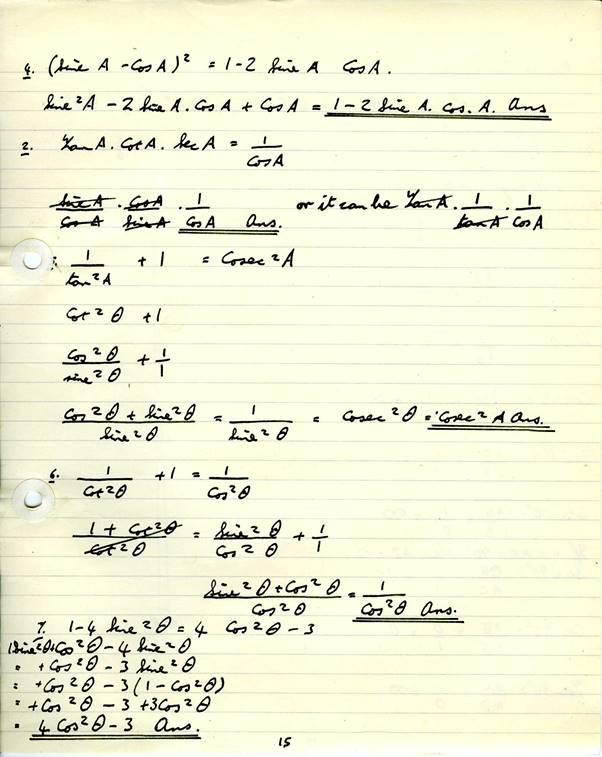 4. (Sine A - Cos A)² = 1-2 Sine A Cos A.
Sine²A - 2 Sine A. Cos A + Cos A = 1-2 Sine A. Cos. A. Ans
2. Tan A. Cot A. Sec A = 1/Cos A
Sine A/Cos A . Cos A/Sine A . 1/Cos A Ans. or it can be Tan A . 1/tan A . 1/Cos A
1/tan²A + 1 = Cosec²A
Cot²θ + 1
Cos²θ/sine²θ + 1/1
Cos²θ + Sine²θ/Sine²θ = 1/Sine²θ = Cosec²θ = Cosec²A Ans.
6. 1/Cot²θ + 1 = 1/Cos²θ
1 + Cot²θ/Cot²θ = Sine²θ/Cos²θ + 1/1
Sine²θ + Cos²θ/Cos²θ = 1/Cos²θ Ans.
7. 1-4 Sine²θ = 4 Cos²θ - 3
1 Sine²θ + Cos²θ - 4 Sine²θ
= + Cos²θ - 3 Sine²θ
= + Cos²θ - 3 (1 - Cos²θ)
= + Cos²θ - 3 + 3Cos²θ
= 4 Cos²θ - 3 Ans.
15